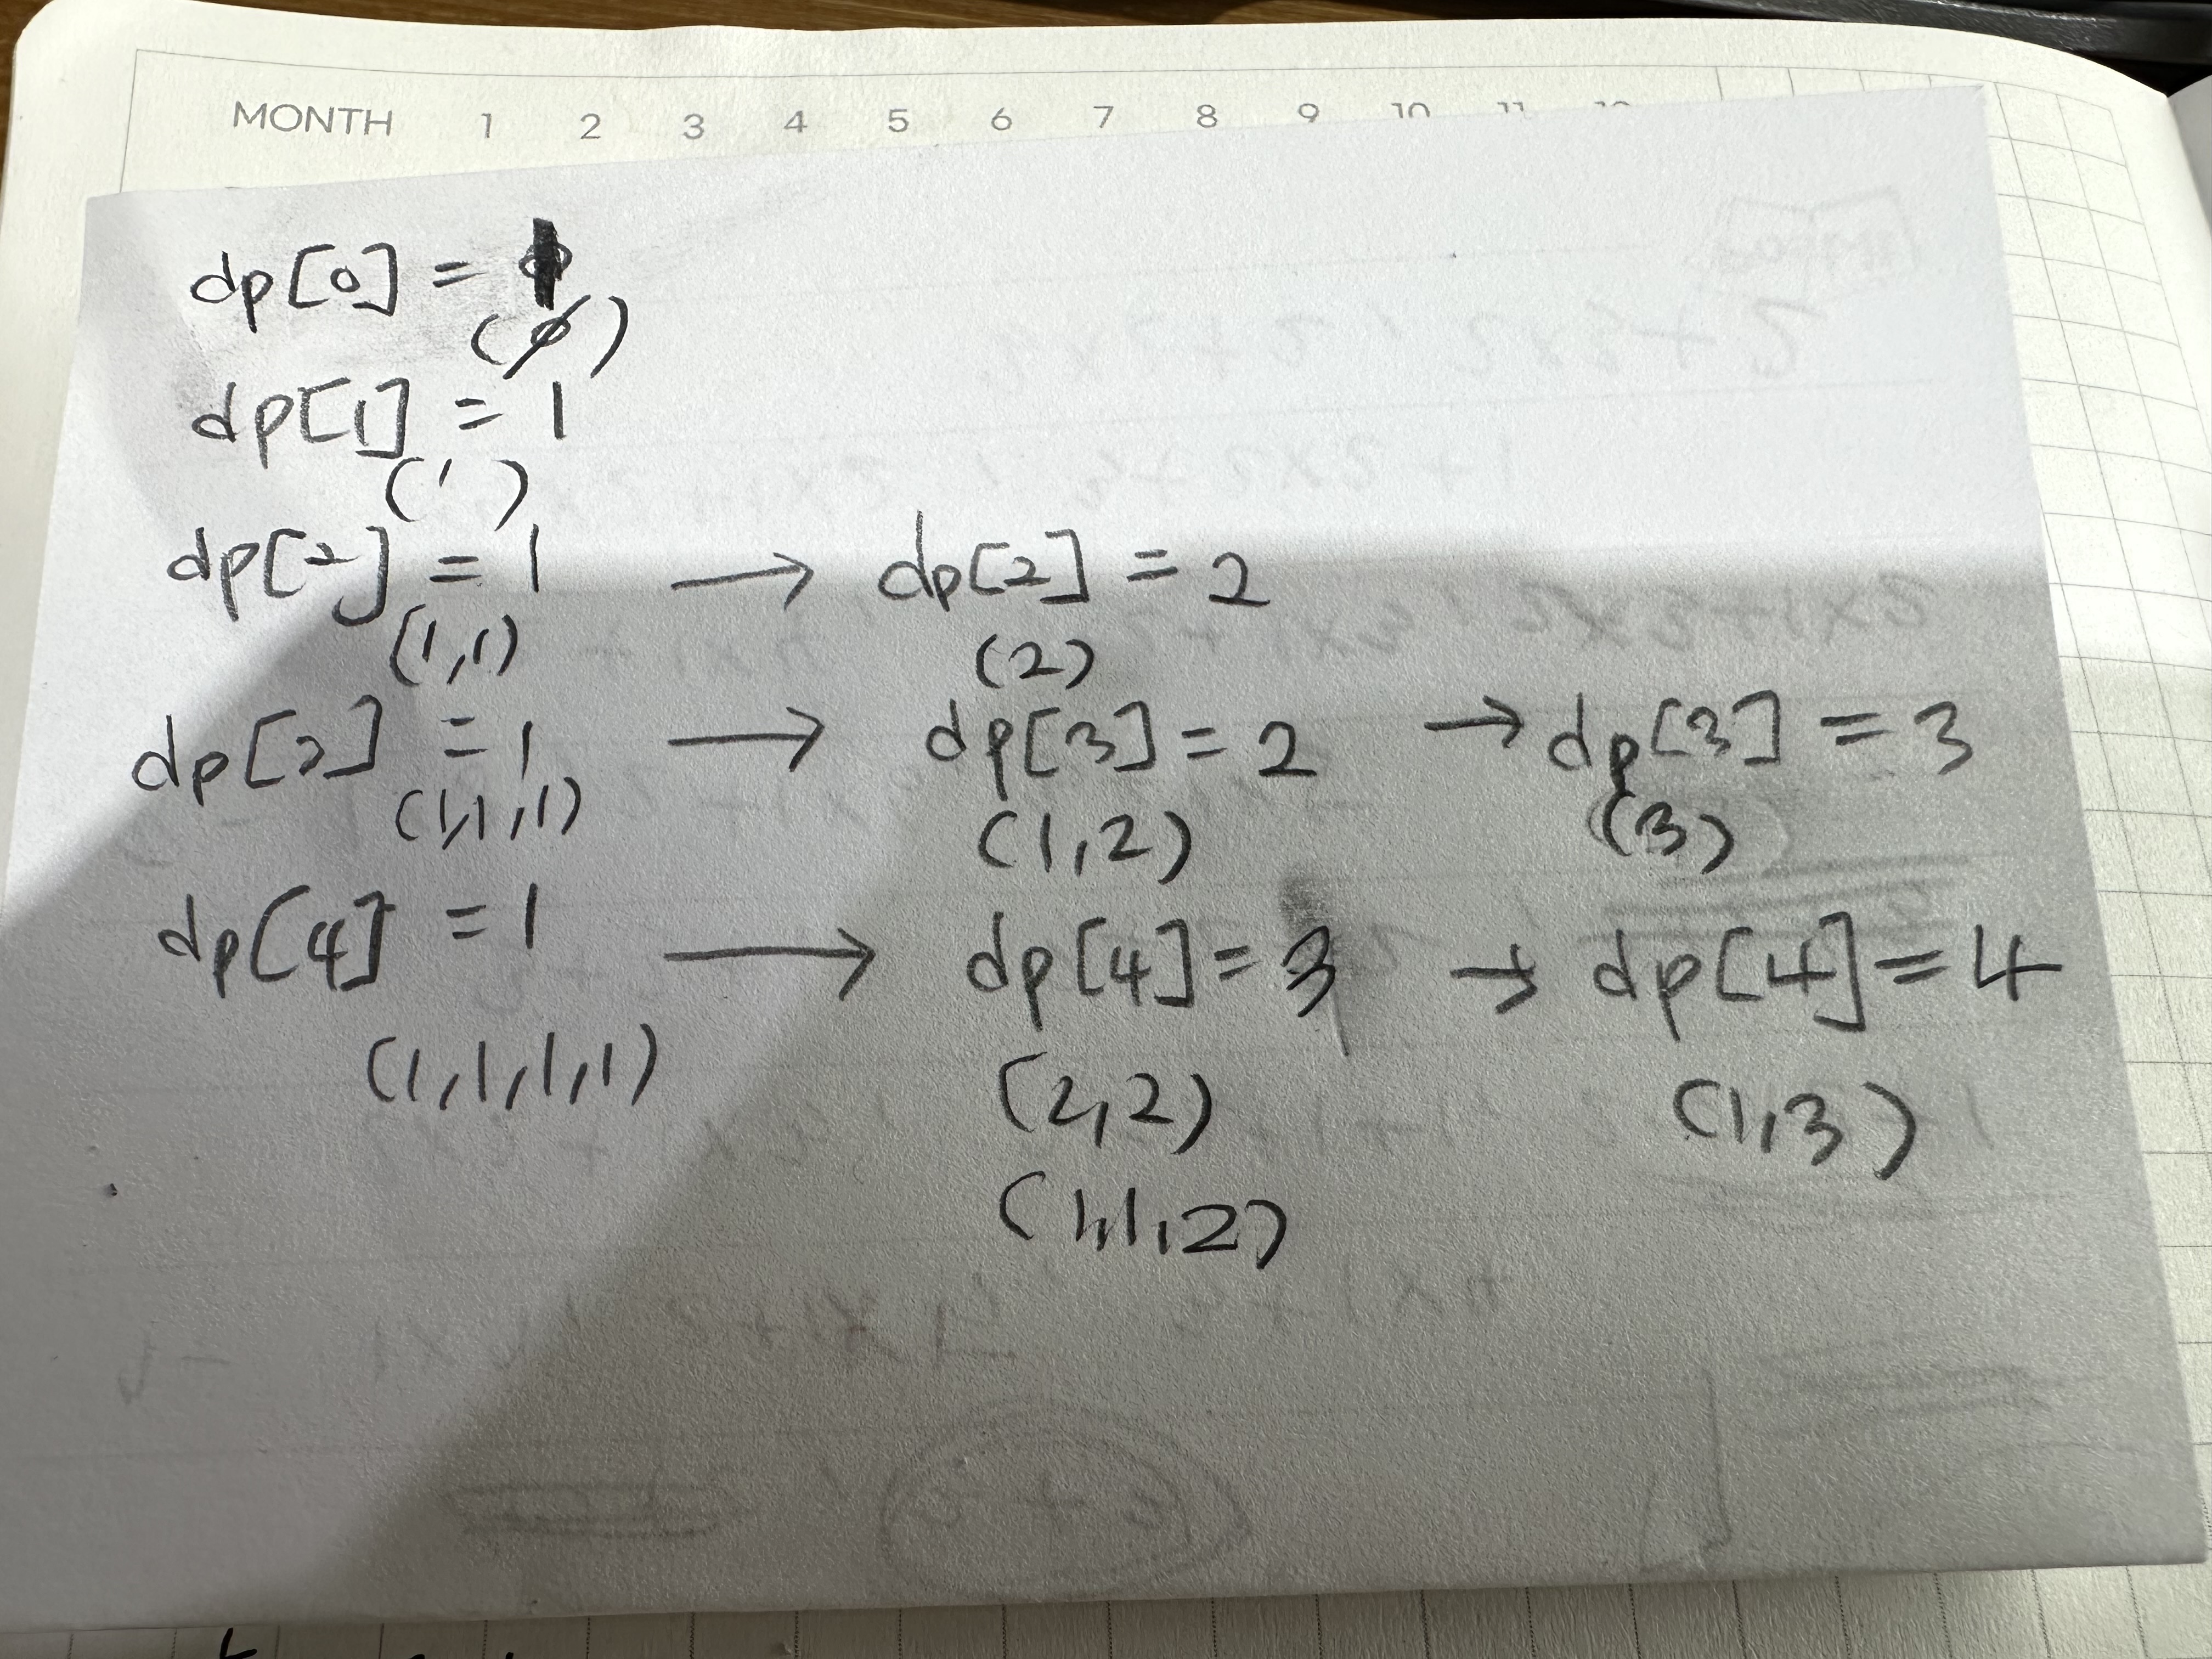 MONTH 1 2 3 4 5 6 7 8 9 10 11
dp[0] = 1
(∅)
dp[1] = 1
(1)
dp[2] = 1 → dp[2] = 2
(1,1) (2)
dp[3] = 1 → dp[3] = 2 → dp[3] = 3
(1,1,1) (1,2) (3)
dp[4] = 1 → dp[4] = 3 → dp[4] = 4
(1,1,1,1) (2,2) (1,3)
(1,1,2)